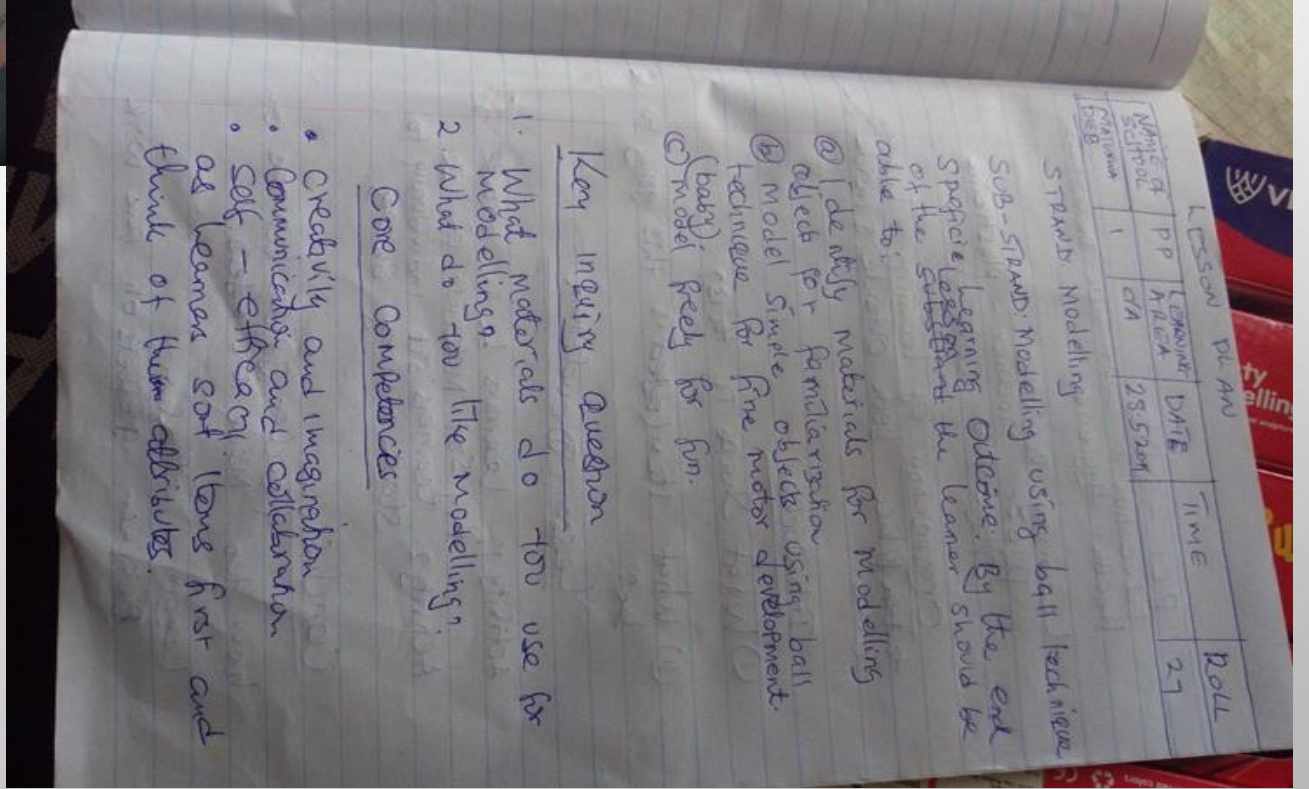 LESSON PLAN
NAME OF SCHOOL | PP | LEARNING AREA | DATE | TIME | ROLL
1 | C/A | 27
STRAND: Modelling
SUB-STRAND: Modelling using ball technique
Spefific Learning Outcome: By the end
of the the learner should be
able to:
(a) Identify materials for modelling
object for familiarization
(b) Model simple objects using ball
technique for fine motor development
(baby).
(c) Model freely for fun.
Key inquiry Question
1. What materials do you use for
modelling?
2. What do you like modelling?
Core Competences
• Creativily and imagination
• Communication and collaboration
• Self - efficacy
as learners sort items first and
think of them attributes.
elling